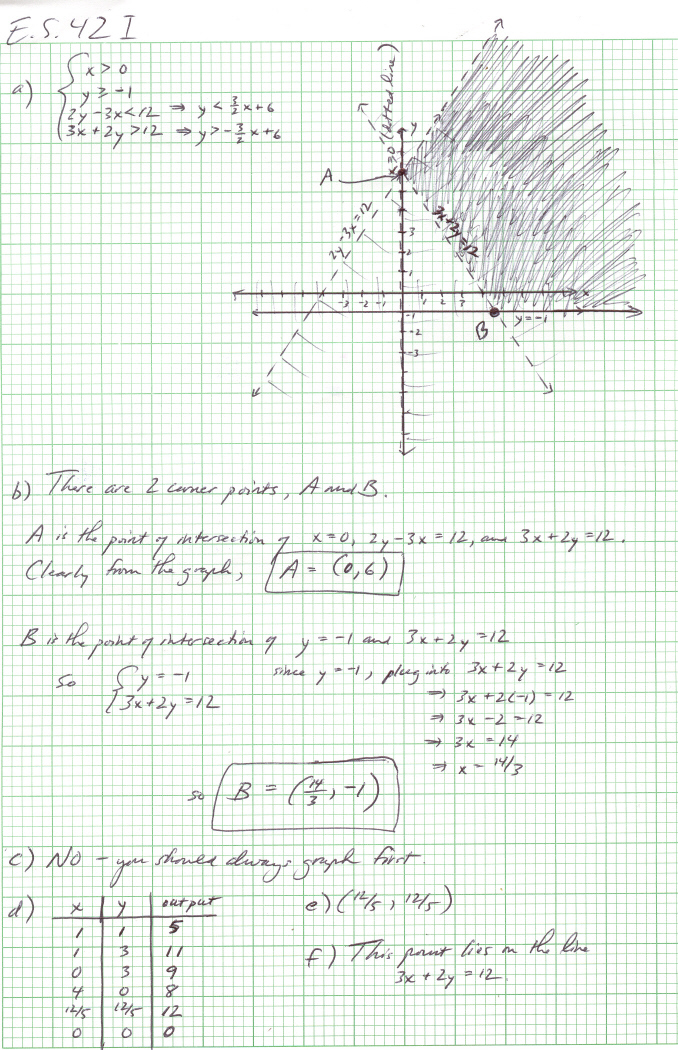 E.S. 42 I
a) { x > 0
y ≥ -1
2y - 3x < 12 ⇒ y < 3/2 x + 6
3x + 2y > 12 ⇒ y > -3/2 x + 6
x≥0 (dotted line)
y
A
2y - 3x = 12
3x + 2y = 12
3
2
1
-3 -2 -1 1 2 3 x
-1
-2
-3
B
y = -1
b) There are 2 corner points, A and B.
A is the point of intersection of x = 0, 2y - 3x = 12, and 3x + 2y = 12.
Clearly from the graph, A = (0, 6)
B is the point of intersection of y = -1 and 3x + 2y = 12
so { y = -1 since y = -1, plug into 3x + 2y = 12
3x + 2y = 12 ⇒ 3x + 2(-1) = 12
⇒ 3x - 2 = 12
⇒ 3x = 14
⇒ x = 14/3
so B = (14/3, -1)
c) NO - you should always graph first.
d) x y output
1 1 5
1 3 11
0 3 9
4 0 8
12/5 12/5 12
0 0 0
e) (12/5, 12/5)
f) This point lies on the line
3x + 2y = 12.